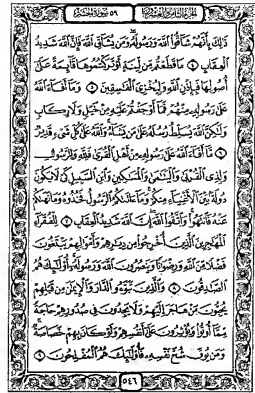 الجزء الثامن والعشرون ٥٩ سورة الحشر
ذَٰلِكَ بِأَنَّهُمْ شَاقُّوا اللَّهَ وَرَسُولَهُ وَمَن يُشَاقِّ اللَّهَ فَإِنَّ اللَّهَ شَدِيدُ
الْعِقَابِ ٤ مَا قَطَعْتُم مِّن لِّينَةٍ أَوْ تَرَكْتُمُوهَا قَائِمَةً عَلَىٰ
أُصُولِهَا فَبِإِذْنِ اللَّهِ وَلِيُخْزِيَ الْفَاسِقِينَ ٥ وَمَا أَفَاءَ اللَّهُ
عَلَىٰ رَسُولِهِ مِنْهُمْ فَمَا أَوْجَفْتُمْ عَلَيْهِ مِنْ خَيْلٍ وَلَا رِكَابٍ
وَلَٰكِنَّ اللَّهَ يُسَلِّطُ رُسُلَهُ عَلَىٰ مَن يَشَاءُ وَاللَّهُ عَلَىٰ كُلِّ شَيْءٍ قَدِيرٌ
٦ مَّا أَفَاءَ اللَّهُ عَلَىٰ رَسُولِهِ مِنْ أَهْلِ الْقُرَىٰ فَلِلَّهِ وَلِلرَّسُولِ
وَلِذِي الْقُرْبَىٰ وَالْيَتَامَىٰ وَالْمَسَاكِينِ وَابْنِ السَّبِيلِ كَيْ لَا يَكُونَ
دُولَةً بَيْنَ الْأَغْنِيَاءِ مِنكُمْ وَمَا آتَاكُمُ الرَّسُولُ فَخُذُوهُ وَمَا نَهَاكُمْ
عَنْهُ فَانتَهُوا وَاتَّقُوا اللَّهَ إِنَّ اللَّهَ شَدِيدُ الْعِقَابِ ٧ لِلْفُقَرَاءِ
الْمُهَاجِرِينَ الَّذِينَ أُخْرِجُوا مِن دِيَارِهِمْ وَأَمْوَالِهِمْ يَبْتَغُونَ
فَضْلًا مِّنَ اللَّهِ وَرِضْوَانًا وَيَنصُرُونَ اللَّهَ وَرَسُولَهُ أُولَٰئِكَ هُمُ
الصَّادِقُونَ ٨ وَالَّذِينَ تَبَوَّءُوا الدَّارَ وَالْإِيمَانَ مِن قَبْلِهِمْ
يُحِبُّونَ مَنْ هَاجَرَ إِلَيْهِمْ وَلَا يَجِدُونَ فِي صُدُورِهِمْ حَاجَةً
مِّمَّا أُوتُوا وَيُؤْثِرُونَ عَلَىٰ أَنفُسِهِمْ وَلَوْ كَانَ بِهِمْ خَصَاصَةٌ
وَمَن يُوقَ شُحَّ نَفْسِهِ فَأُولَٰئِكَ هُمُ الْمُفْلِحُونَ ٩
٥٤٦